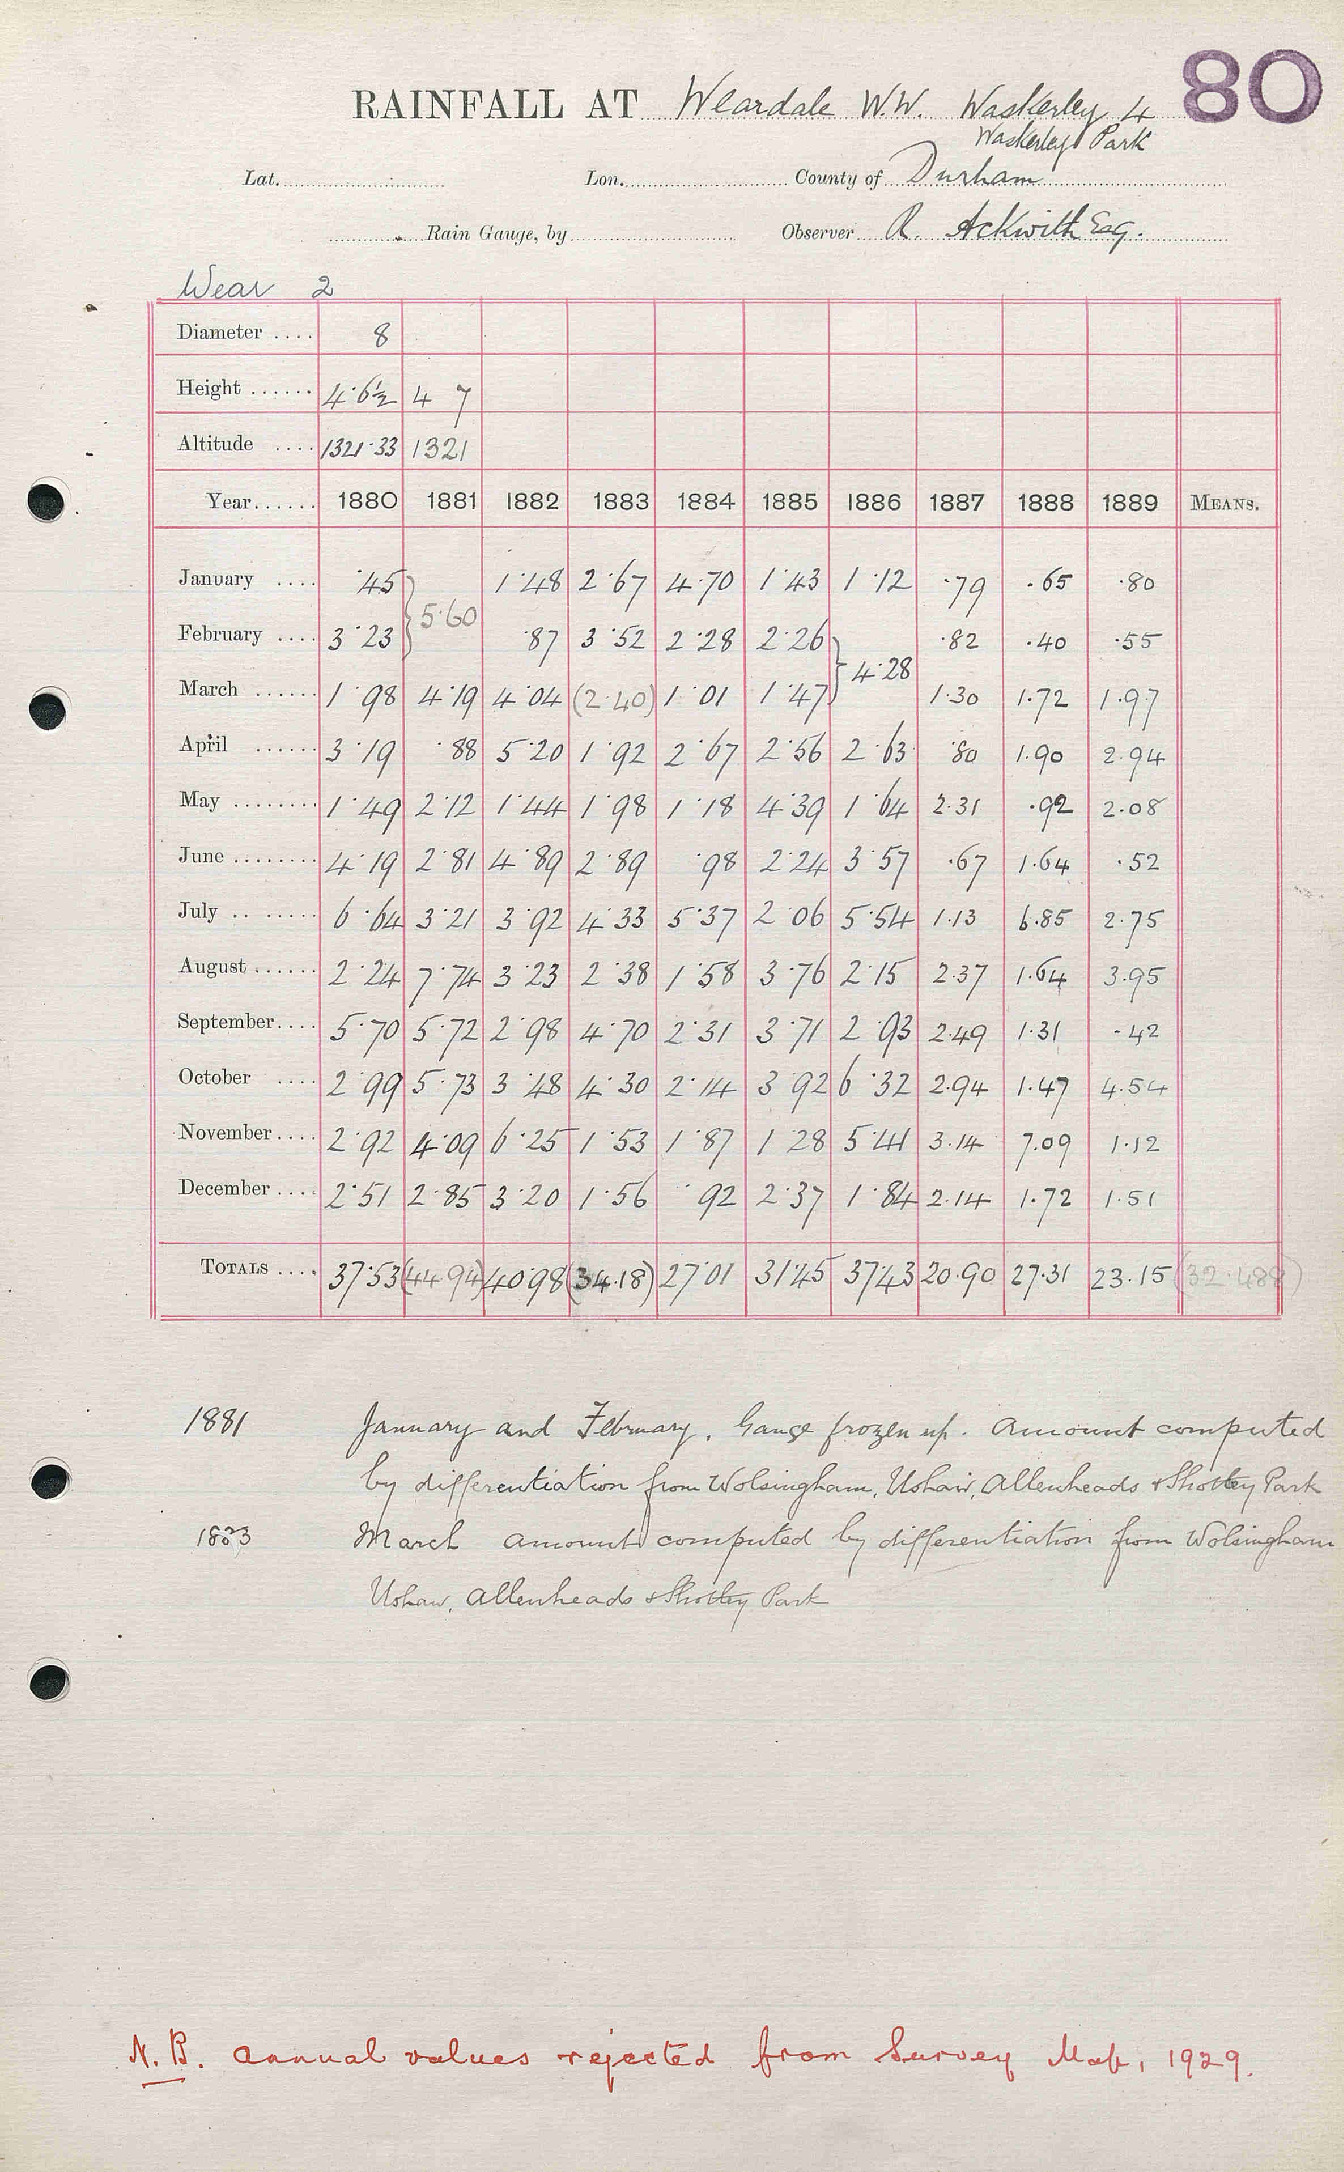 80
RAINFALL AT Weardale W.W. Waskerley 4
Waskerley Park
Lat. Lon. County of Durham
Rain Gauge, by Observer R. Ackwith Esq.
Wear 2
Diameter .... 8
Height ...... 4·6½ 4 7
Altitude .... 1321·33 1321
Year...... 1880 1881 1882 1883 1884 1885 1886 1887 1888 1889 MEANS.
January .... ·45 1·48 2·67 4·70 1·43 1·12 ·79 ·65 ·80
5·60
February .... 3·23 ·87 3·52 2·28 2·26 ·82 ·40 ·55
4·28
March ...... 1·98 4·19 4·04 (2·40) 1·01 1·47 1·30 1·72 1·97
April ...... 3·19 ·88 5·20 1·92 2·67 2·56 2·63 ·80 1·90 2·94
May ........ 1·49 2·12 1·44 1·98 1·18 4·39 1·64 2·31 ·92 2·08
June ........ 4·19 2·81 4·89 2·89 ·98 2·24 3·57 ·67 1·64 ·52
July .. ...... 6·64 3·21 3·92 4·33 5·37 2·06 5·54 1·13 6·85 2·75
August ...... 2·24 7·74 3·23 2·38 1·58 3·76 2·15 2·37 1·64 3·95
September.... 5·70 5·72 2·98 4·70 2·31 3·71 2·93 2·49 1·31 ·42
October .... 2·99 5·73 3·48 4·30 2·14 3·92 6·32 2·94 1·47 4·54
November.... 2·92 4·09 6·25 1·53 1·87 1·28 5·41 3·14 7·09 1·12
December .... 2·51 2·85 3·20 1·56 ·92 2·37 1·84 2·14 1·72 1·51
TOTALS .... 37·53 (44·94) 40·98 (34·18) 27·01 31·45 37·43 20·90 27·31 23·15 (32·488)
1881 January and February. Gauge frozen up. Amount computed
by differentiation from Wolsingham, Ushaw, Allenheads & Shotley Park
1883 March amount computed by differentiation from Wolsingham
Ushaw, Allenheads & Shotley Park
N.B. Annual values rejected from Survey Map, 1929.